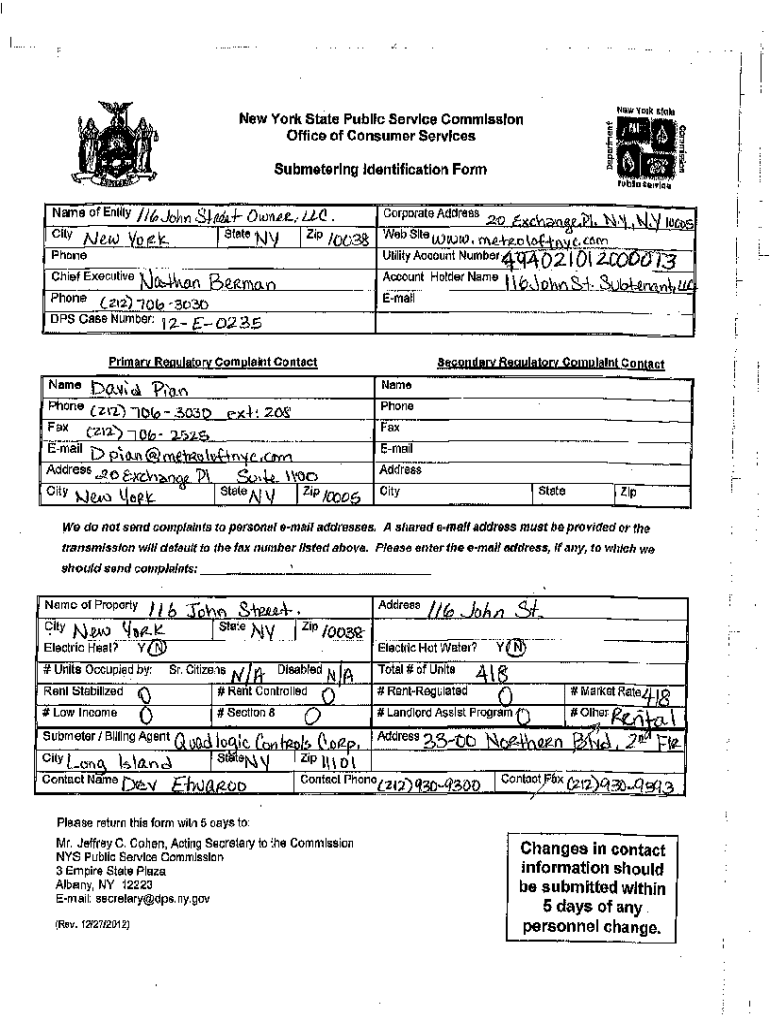 New York State Public Service Commission
Office of Consumer Services
Submetering Identification Form
New York State
Department
Commission
Public Service
Name of Entity 116 John Street Owner, LLC.
Corporate Address 20 Exchange Pl. N.Y., N.Y 10005
City New York State NY Zip 10038
Web Site www.metroloftnyc.com
Phone
Utility Account Number 494021012000013
Chief Executive Nathan Berman
Account Holder Name 116 John St. Subtenant, LLC
Phone (212) 706-3030
E-mail
DPS Case Number: 12-E-0235
Primary Regulatory Complaint Contact
Secondary Regulatory Complaint Contact
Name David Pian
Name
Phone (212) 706-3030 ext: 208
Phone
Fax (212) 706-2525
Fax
E-mail Dpian@metroloftnyc.com
E-mail
Address 20 Exchange Pl Suite 1100
Address
City New York State NY Zip 10005
City State Zip
We do not send complaints to personal e-mail addresses. A shared e-mail address must be provided or the
transmission will default to the fax number listed above. Please enter the e-mail address, if any, to which we
should send complaints:
Name of Property 116 John Street.
Address 116 John St.
City New York State NY Zip 10038
Electric Heat? Y N
Electric Hot Water? Y N
# Units Occupied by: Sr. Citizens N/A Disabled N/A
Total # of Units 418
Rent Stabilized 0 # Rent Controlled 0
# Rent-Regulated 0 # Market Rate 418
# Low Income 0 # Section 8 0
# Landlord Assist Program 0 # Other Rental
Submeter / Billing Agent Quadlogic Controls Corp.
Address 33-00 Northern Blvd, 2nd Flr
City Long Island State NY Zip 11101
Contact Name Dev Etwaroo
Contact Phone (212) 930-9300 Contact Fax (212) 930-9393
Please return this form witn 5 oays to:
Mr. Jeffrey C. Cohen, Acting Secretary to the Commission
NYS Public Service Commission
3 Empire State Plaza
Albany, NY 12223
E-mail: secretary@dps.ny.gov
(Rev. 12/27/2012)
Changes in contact
information should
be submitted within
5 days of any
personnel change.